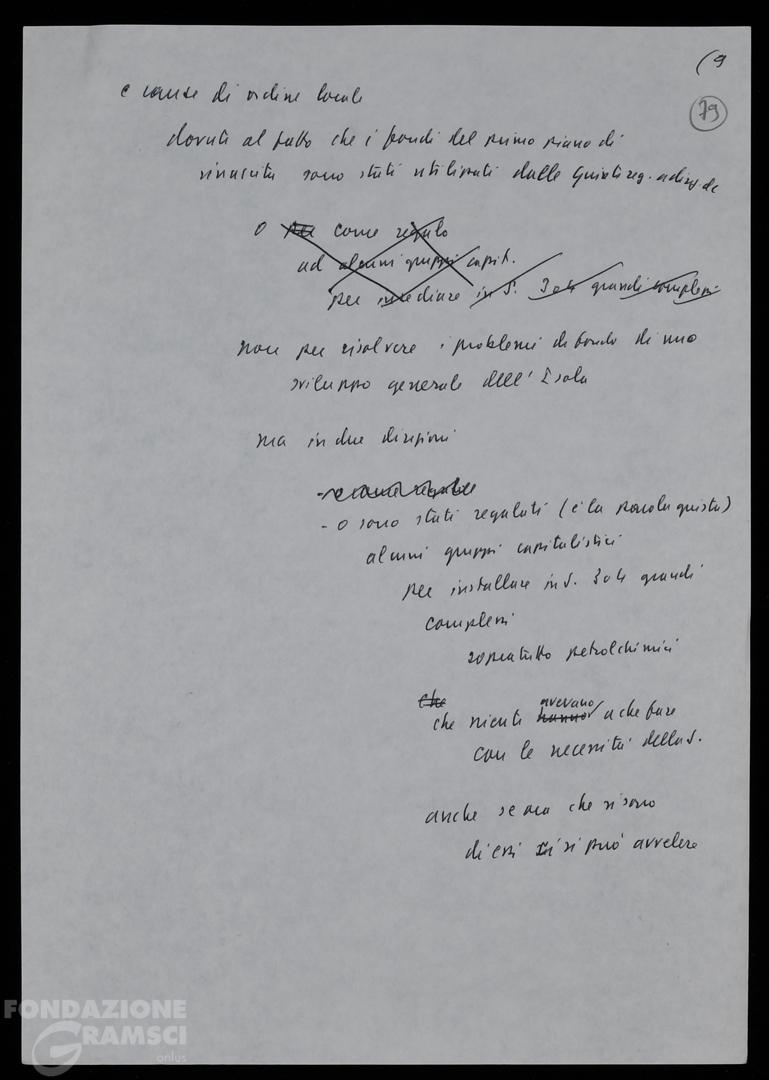 (9
79
e cause di ordine locale
dovuti al fatto che i fondi del primo piano di
rinascita sono stati utilizzati dalle Giunte reg.
o per come regalo
ad alcuni gruppi capit.
per insediare in S. 3 o 4 grandi complessi
non per risolvere i problemi di fondo di uno
sviluppo generale dell' Isola
ma in due direzioni
- o sono stati regalati (è la parola giusta)
alcuni gruppi capitalistici
per installare in S. 3 o 4 grandi
complessi
sopratutto petrolchimici
che
avevano
che niente hanno a che fare
con le necessità della S.
anche se ora che vi sono
di essi ci si può avvalere
FONDAZIONE
GRAMSCI
onlus